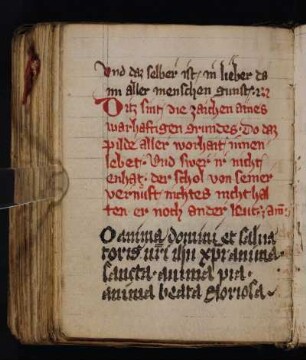 Vnd daz selber ist / in lieber da
im aller menschen gunst
Ditz sint die zaichen aines
warhaftigen grundes · Do daz
pilde aller worhait innen
lebet · Vnd swer ir nicht
enhat · der schol von seiner
vernuft nichtes nicht hal
ten er noch ander leut · am̄
O anima domini et salua
toris nr̄i ihū xp̄i anima
sancta · anima pia ·
anima beata gloriosa ·